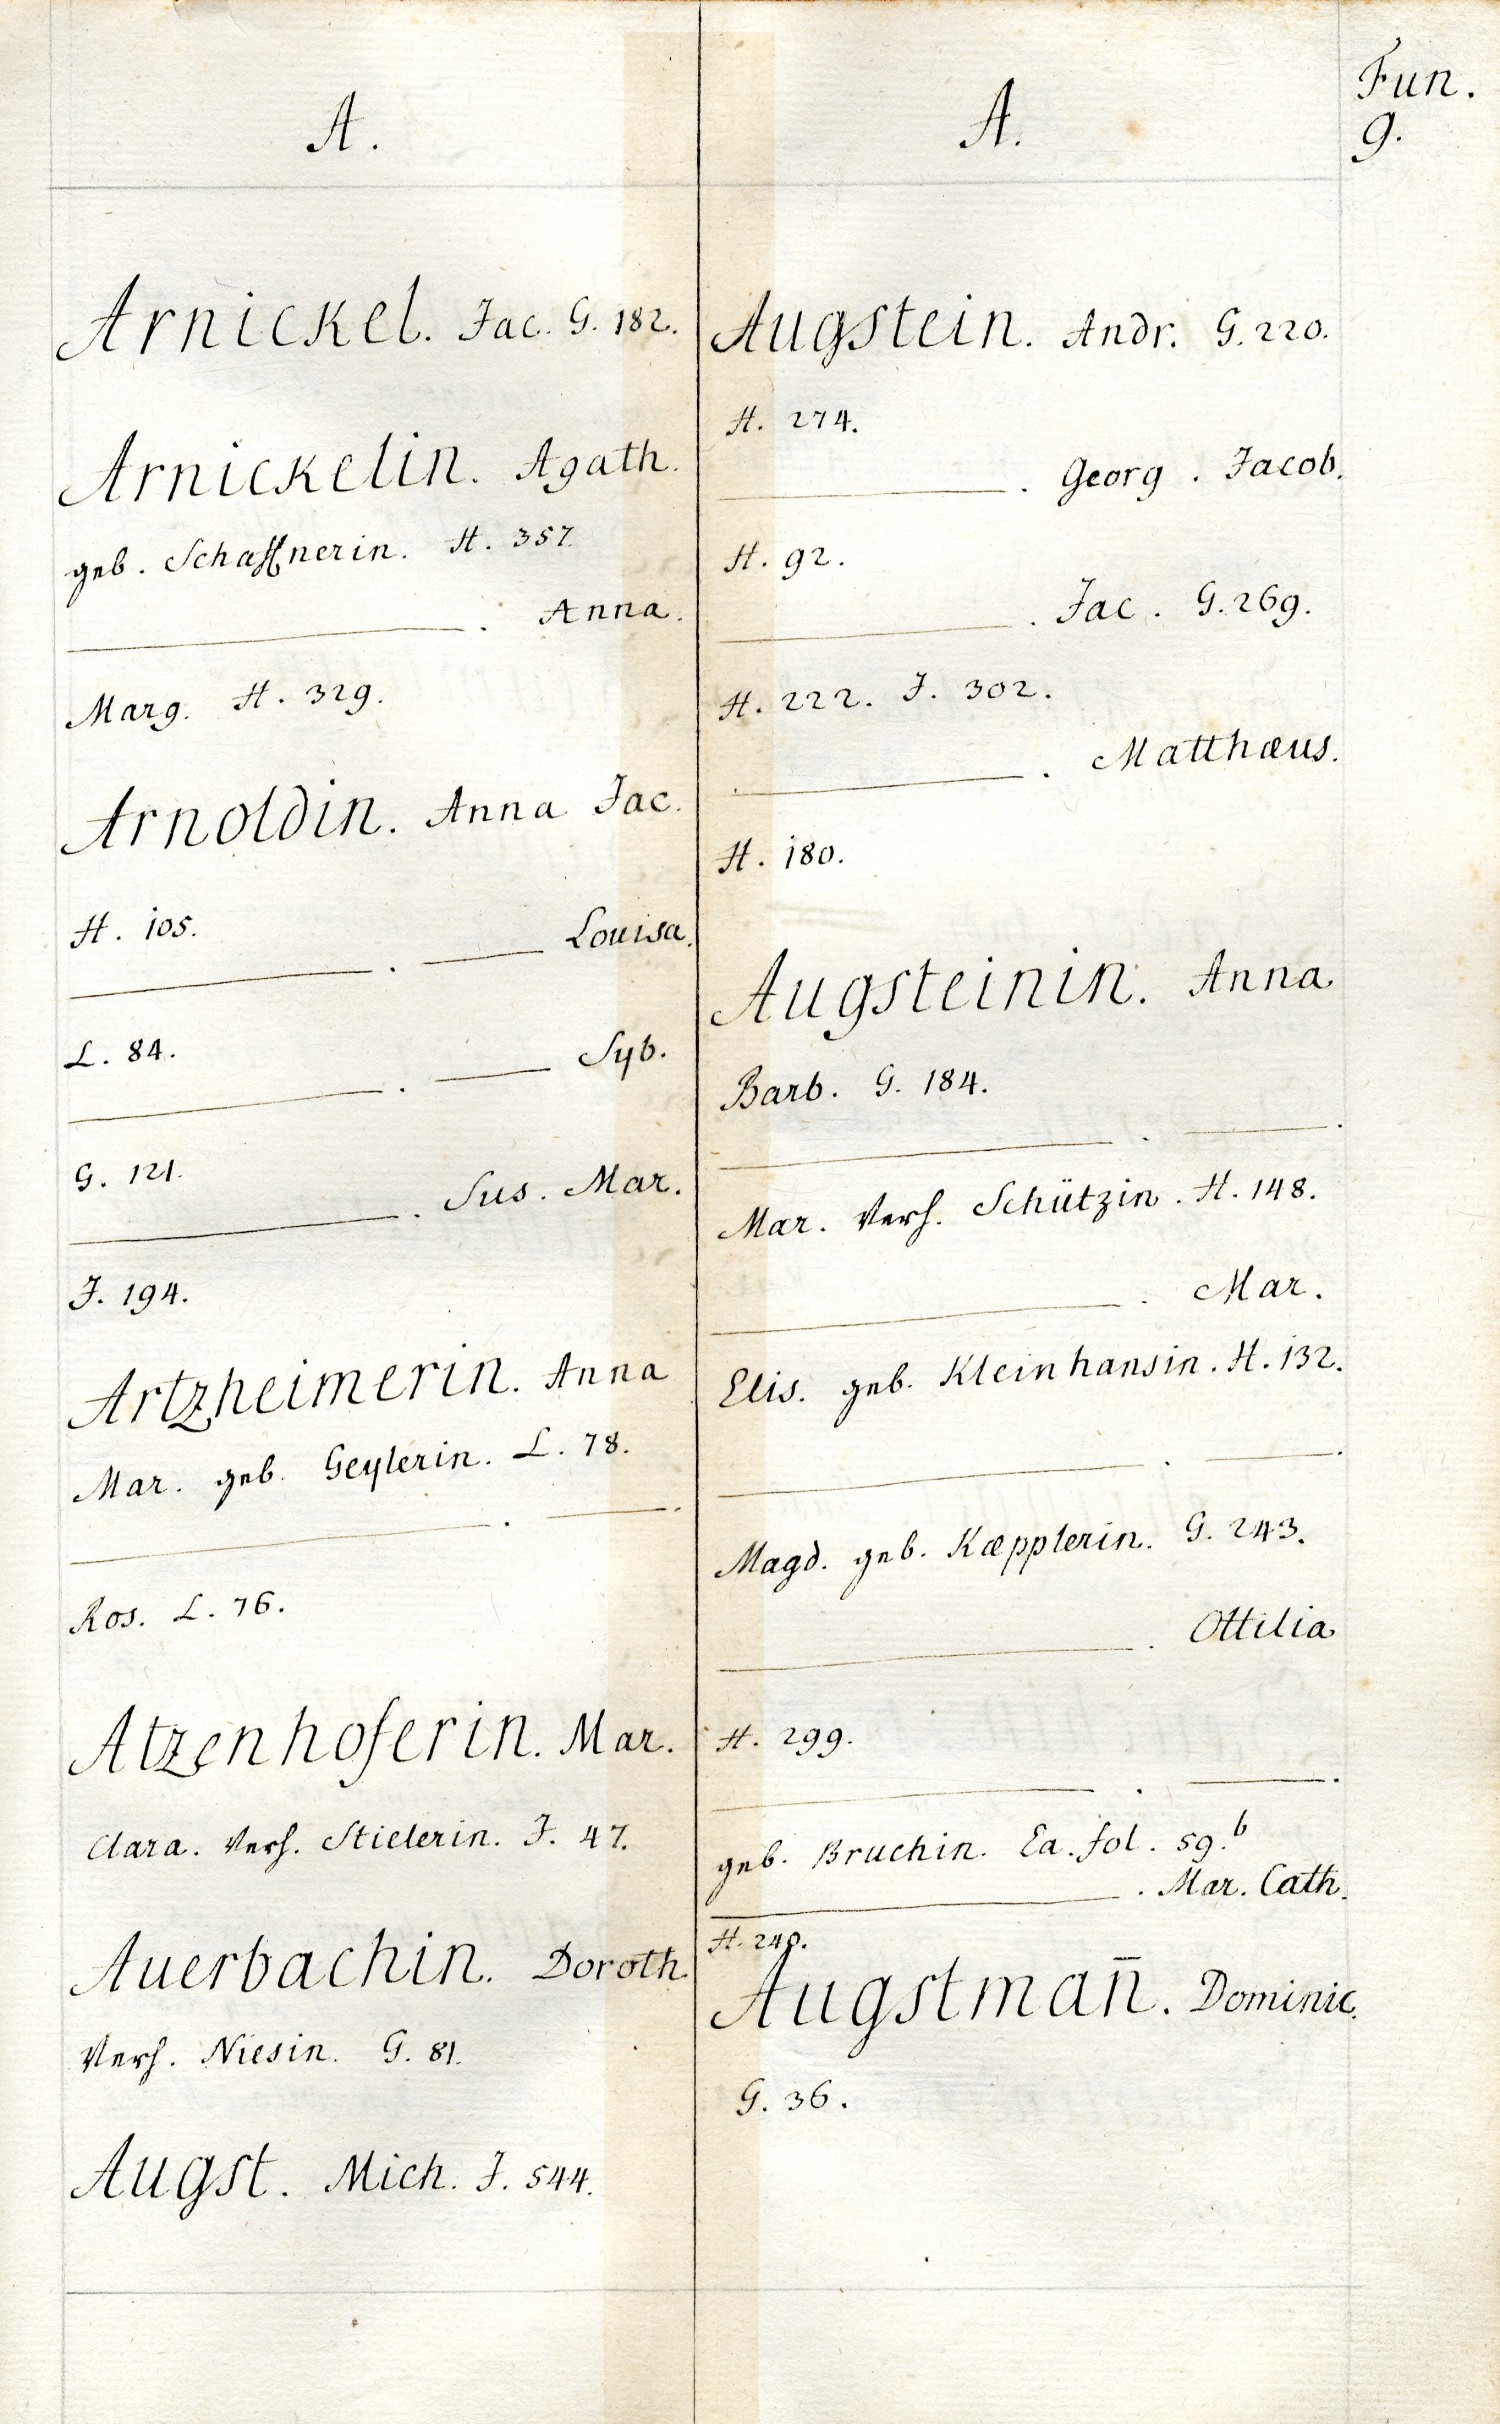 Fun.
9.
A.
Arnickel. Jac. G. 182.
Arnickelin. Agath.
geb. Schaffnerin. H. 357.
———. Anna.
Marg. H. 329.
Arnoldin. Anna Jac.
H. 105.
———. —— Louisa.
L. 84.
———. —— Syb.
G. 121.
———. Sus. Mar.
J. 194.
Artzheimerin. Anna
Mar. geb. Geylerin. L. 78.
———. ——.
Ros. L. 76.
Atzenhoferin. Mar.
Clara. Verh. Stielerin. J. 47.
Auerbachin. Doroth.
Verh. Niesin. G. 81.
Augst. Mich. J. 544.
A.
Augstein. Andr. G. 220.
H. 274.
———. Georg. Jacob.
H. 92.
———. Jac. G. 269.
H. 222. J. 302.
———. Matthæus.
H. 180.
Augsteinin. Anna
Barb. G. 184.
———. ——.
Mar. Verh. Schützin. H. 148.
———. Mar.
Elis. geb. Kleinhansin. H. 132.
———. ——.
Magd. geb. Kæpplerin. G. 243.
———. Ottilia
H. 299.
———. ——.
geb. Bruchin. Ea. fol. 59.b
———. Mar. Cath.
H.
Augstman̄. Dominic.
G. 36.